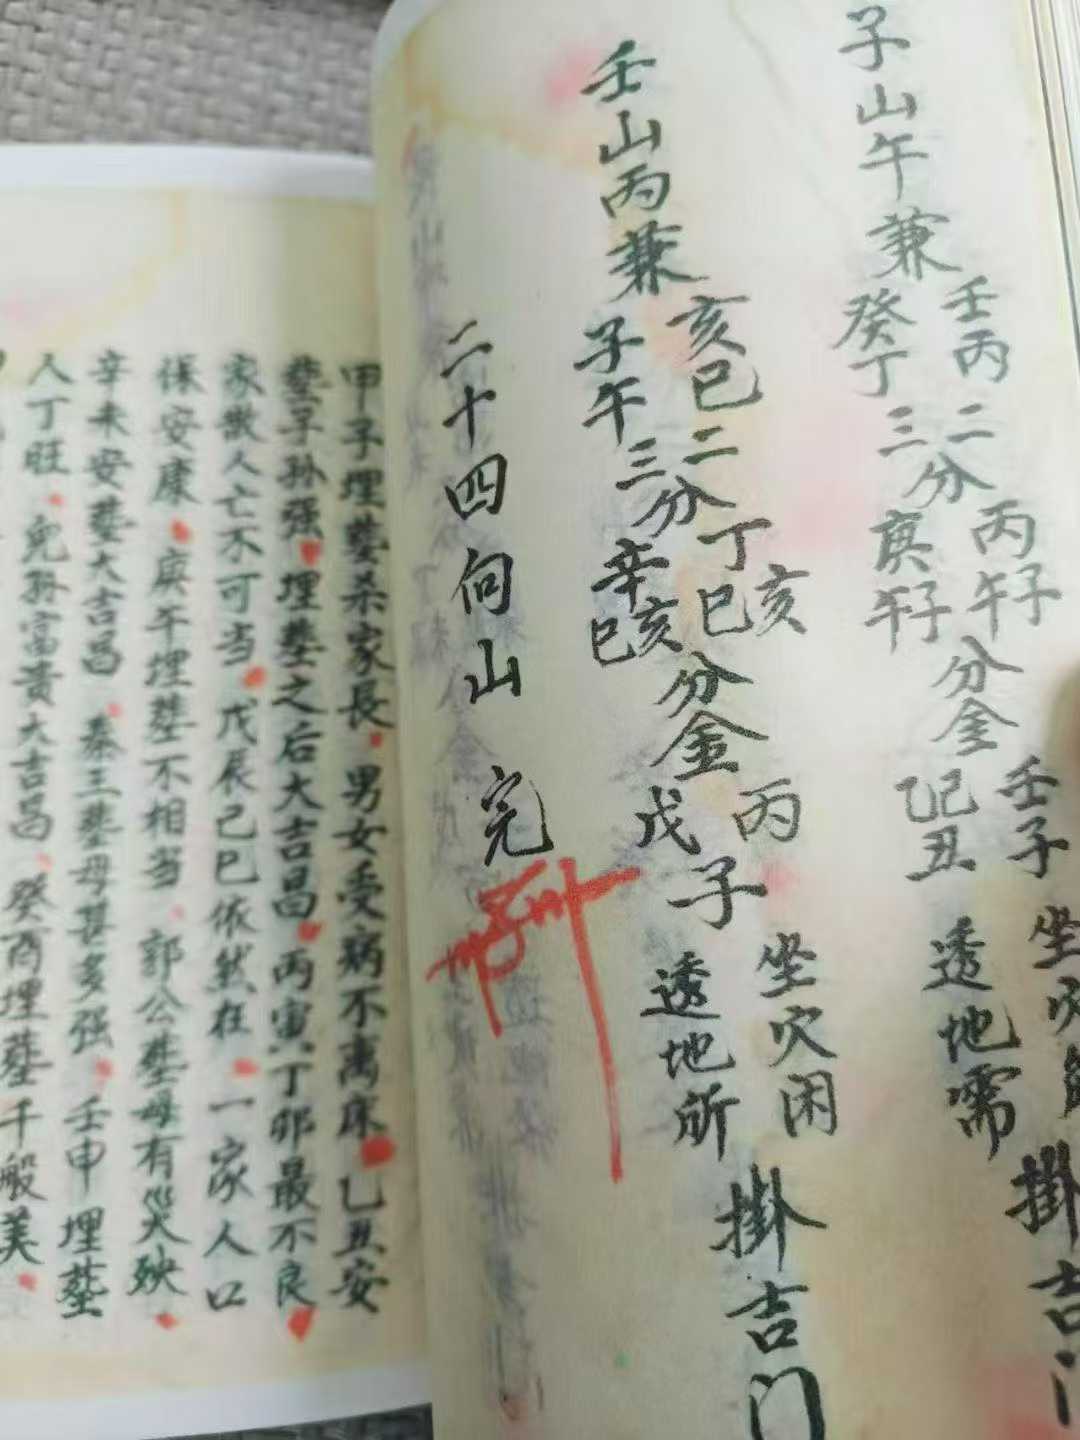 子山午兼
壬丙二
癸丁三
分
丙子
午
庚子
午
分金
壬子
己丑
坐穴
透地需
掛吉
壬山丙兼
亥巳二
子午三
分
丁亥
巳
辛亥
巳
分金
丙
戊
子
坐穴闲
透地所
掛吉门
二十四向山 完
甲子埋塟杀家長 男女受病不离床 乙丑安
塟子孙强 埋塟之后大吉昌 丙寅丁卯最不良
家散人亡不可当 戊辰己巳依然在 一家人口
保安康 庚午埋塟不相当 郭公塟母有災殃
辛未安塟大吉昌 秦王塟母甚多强 壬申埋塟
人丁旺 兒孙富貴大吉昌 癸酉埋塟千般美